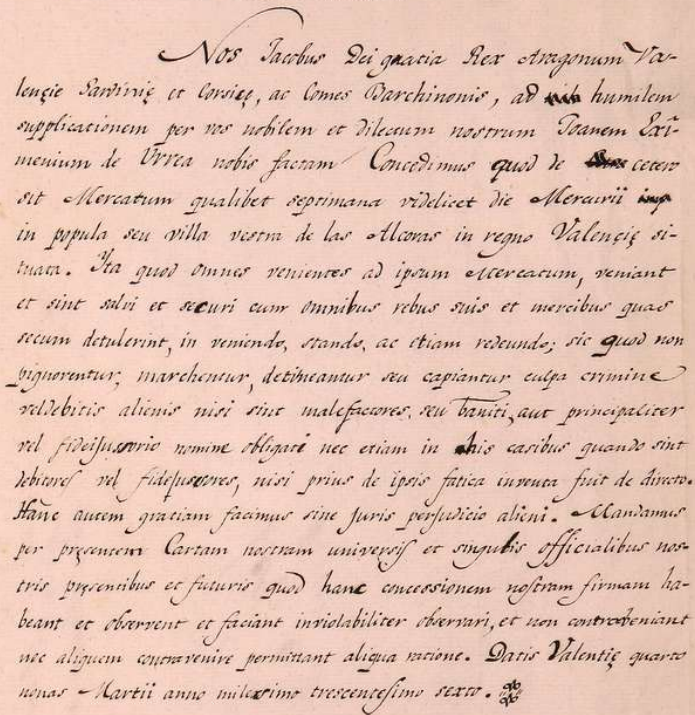 Nos Jacobus Dei gratia Rex Aragonum Va-
lençie Sardinię et Corsicę, ac Comes Barchinonis, ad humilem
supplicationem per vos nobilem et dilectum nostrum Joanem Exi-
menium de Vrrea nobis factam Concedimus quod de cetero
sit Mercatum qualibet septimana videlicet die Mercurii
in popula seu villa vestra de las Alcoras in regno Valençię si-
tuata. Ita quod omnes venientes ad ipsum Mercatum, veniant
et sint salvi et securi cum omnibus rebus suis et mercibus quas
secum detulerint, in veniendo, stando, ac etiam redeundo; sic quod non
pignorentur, marchentur, detineantur seu capiantur culpa crimine
vel debitis alienis nisi sint malefactores, seu baniti, aut principaliter
vel fideijussorio nomine obligati nec etiam in his casibus quando sint
debitores vel fidejussores, nisi prius de ipsis fatica inventa fuit de directo.
Hanc autem gratiam facimus sine juris perjudicio alieni. Mandamus
per pręsentem Cartam nostram universis et singulis officialibus nos-
tris pręsentibus et futuris quod hanc concessionem nostram firmam ha-
beant et observent et faciant inviolabiliter observari, et non contrabeniant
nec aliquem contravenire permittant aliqua ratione. Datis Valentię quarto
nonas Martii anno milessimo trescentesimo sexto.